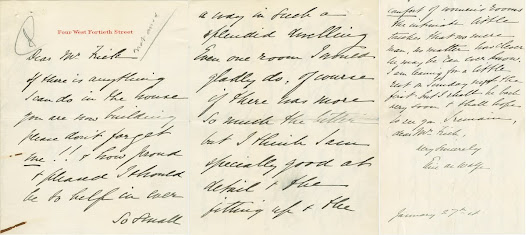 Four West Fortieth Street
Dear Mr Frick
If there is anything
I can do in the house
you are now building
please don't forget
me!! & how proud
& pleased I should
be to help in ever
so small
a way in such a
splendid dwelling
Even one room I would
gladly do, of course
if there was more
so much the better
but I think I am
specially good at
detail & the
fitting up & the
comfort of women's rooms
the intimate little
touches that no mere
man, no matter how clever
he may be can ever know.
I am leaving for a little
rest on Sunday night the
first but I shall be back
very soon & shall hope
to see you I remain,
dear Mr Frick,
very sincerely
Elsie de Wolfe
January 27th